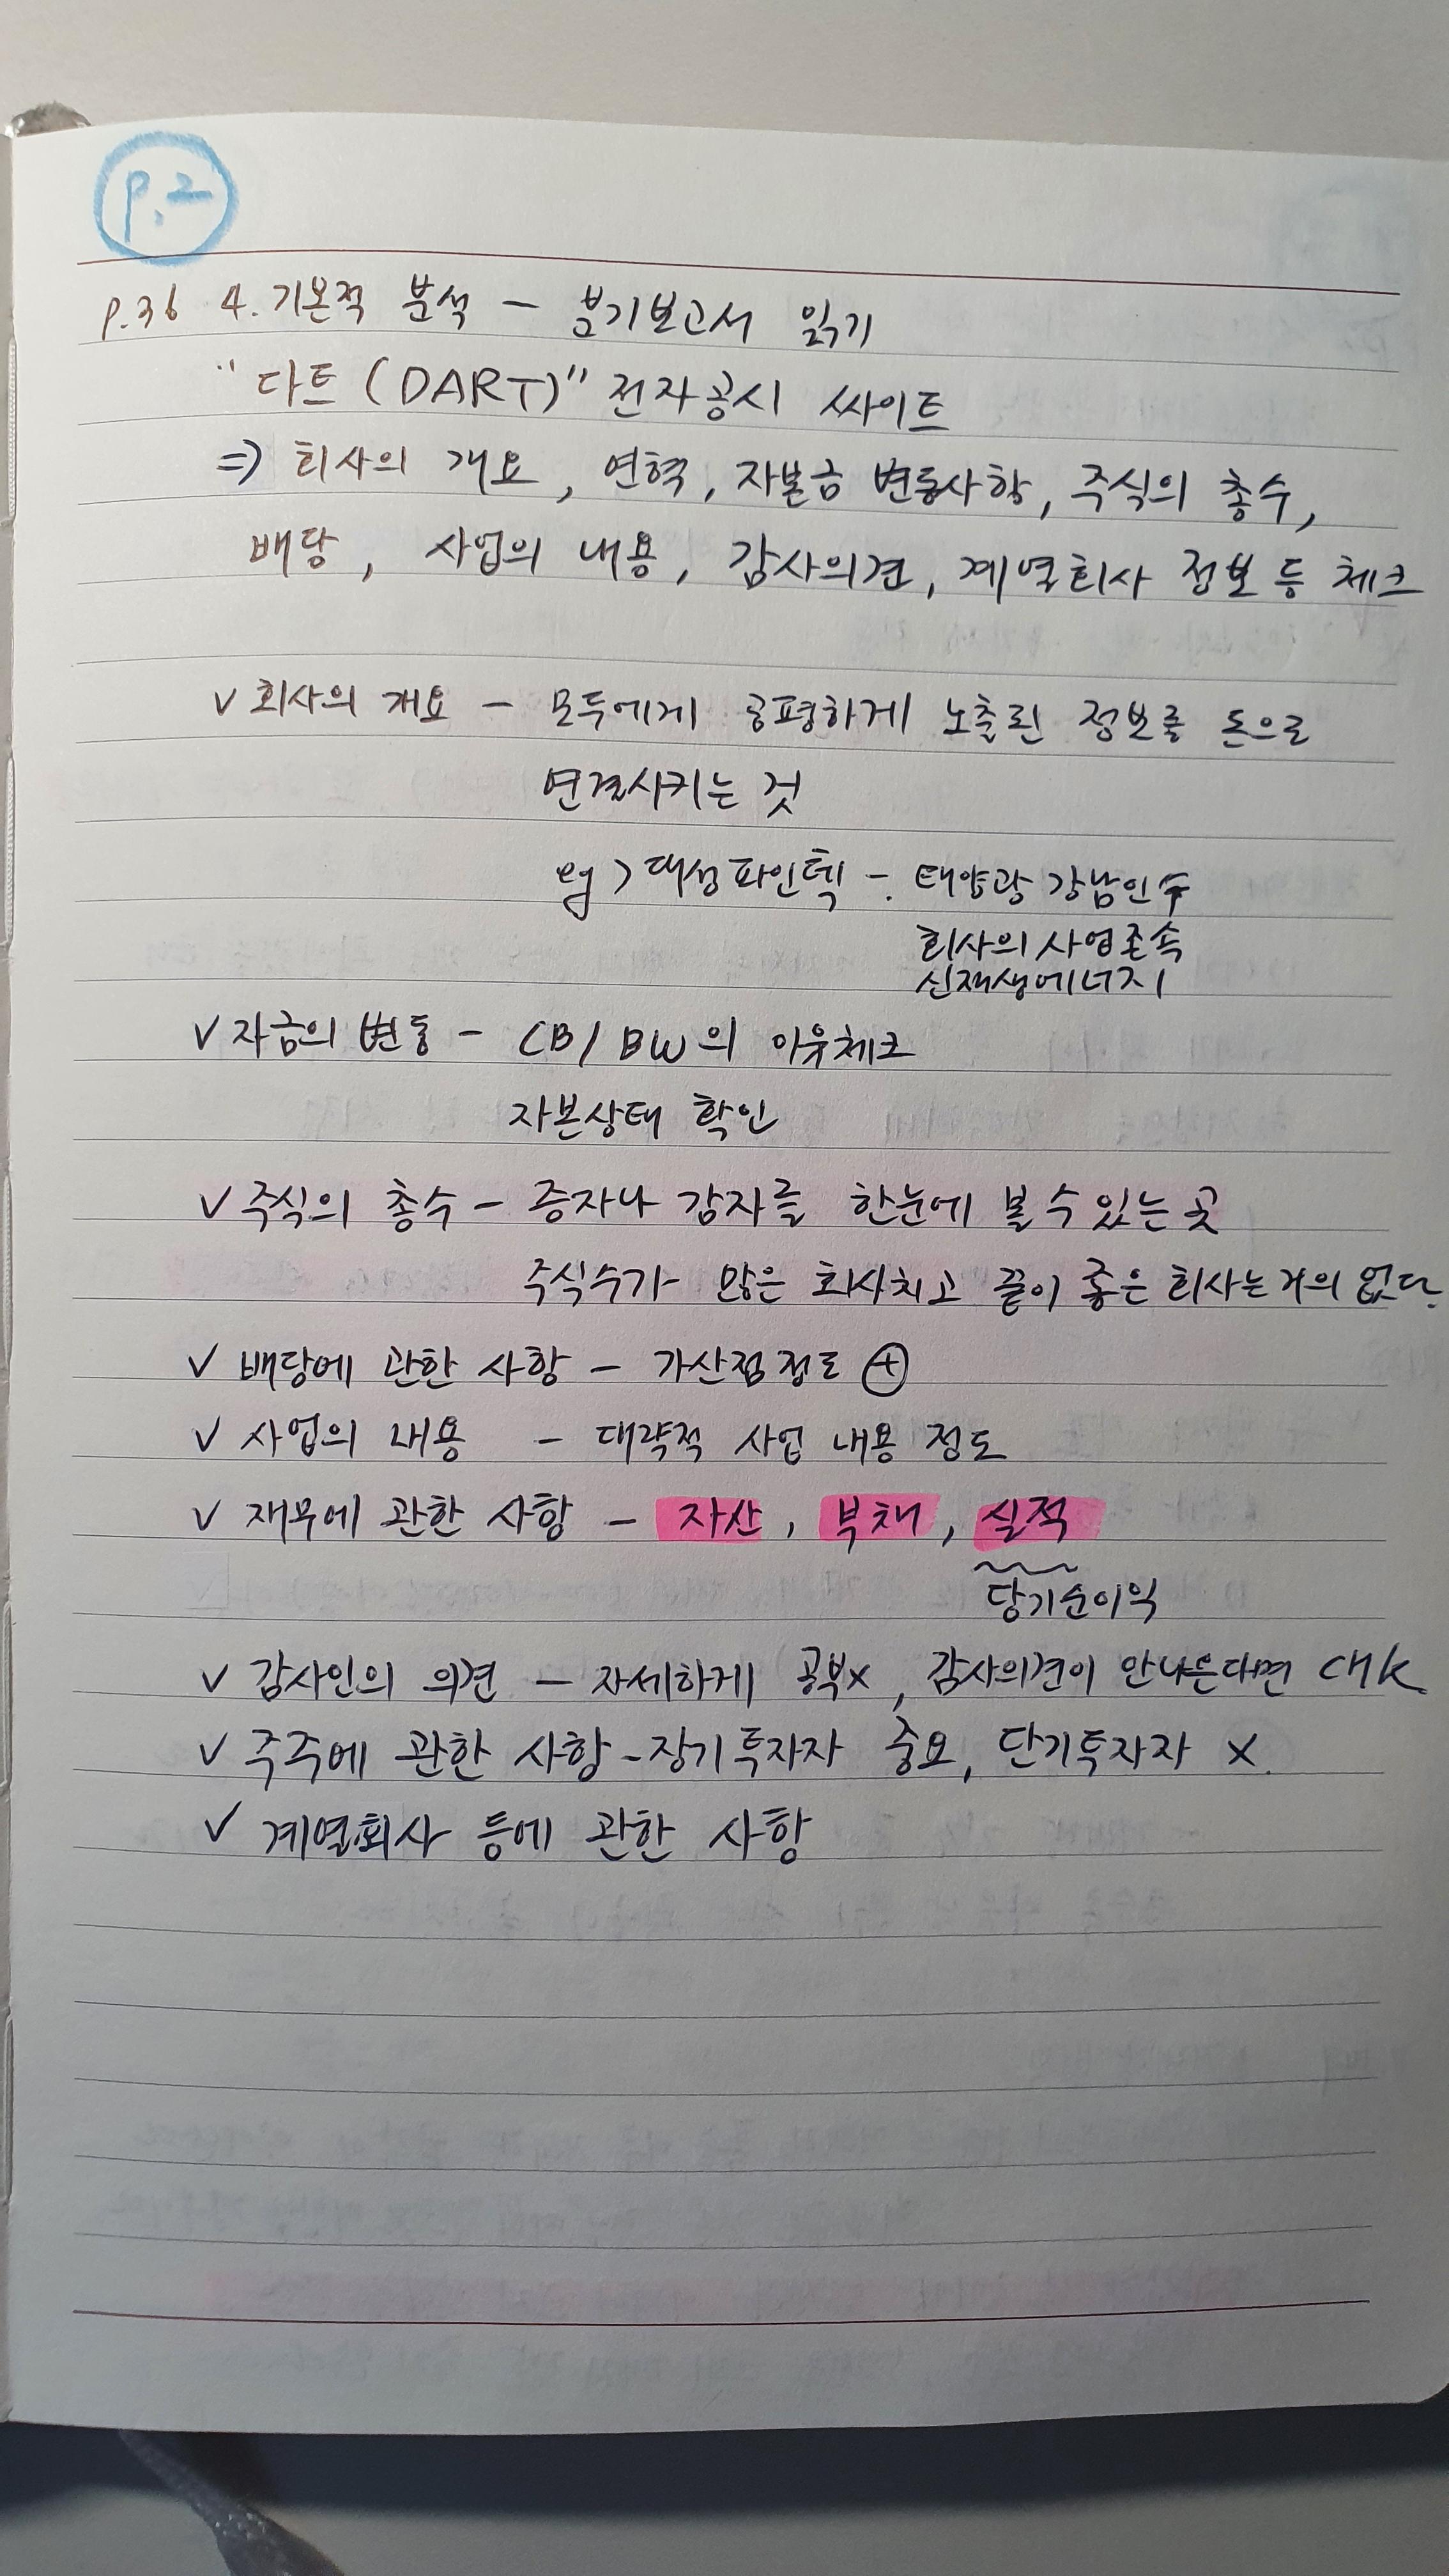 p.2
p.36 4. 기본적 분석 - 분기보고서 읽기
"다트 (DART)" 전자공시 싸이트
⇒ 회사의 개요, 연혁, 자본금 변동사항, 주식의 총수,
배당, 사업의 내용, 감사의견, 계열회사 정보 등 체크
✓ 회사의 개요 - 모두에게 공평하게 노출된 정보를 돈으로
연결시키는 것
eg > 대성파인텍 - 태양광 강남인수
회사의 사업존속
신재생에너지
✓ 자금의 변동 - CB/BW의 이유체크
자본상태 확인
✓ 주식의 총수 - 증자나 감자를 한눈에 볼 수 있는 곳
주식수가 많은 회사치고 끝이 좋은 회사는 거의 없다.
✓ 배당에 관한 사항 - 가산점정도 ⊕
✓ 사업의 내용 - 대략적 사업 내용 정도
✓ 재무에 관한 사항 - 자산, 부채, 실적
당기순이익
✓ 감사인의 의견 - 자세하게 공부x, 감사의견이 안나온다면 chk
✓ 주주에 관한 사항 - 장기투자자 중요, 단기투자자 x.
✓ 계열회사 등에 관한 사항